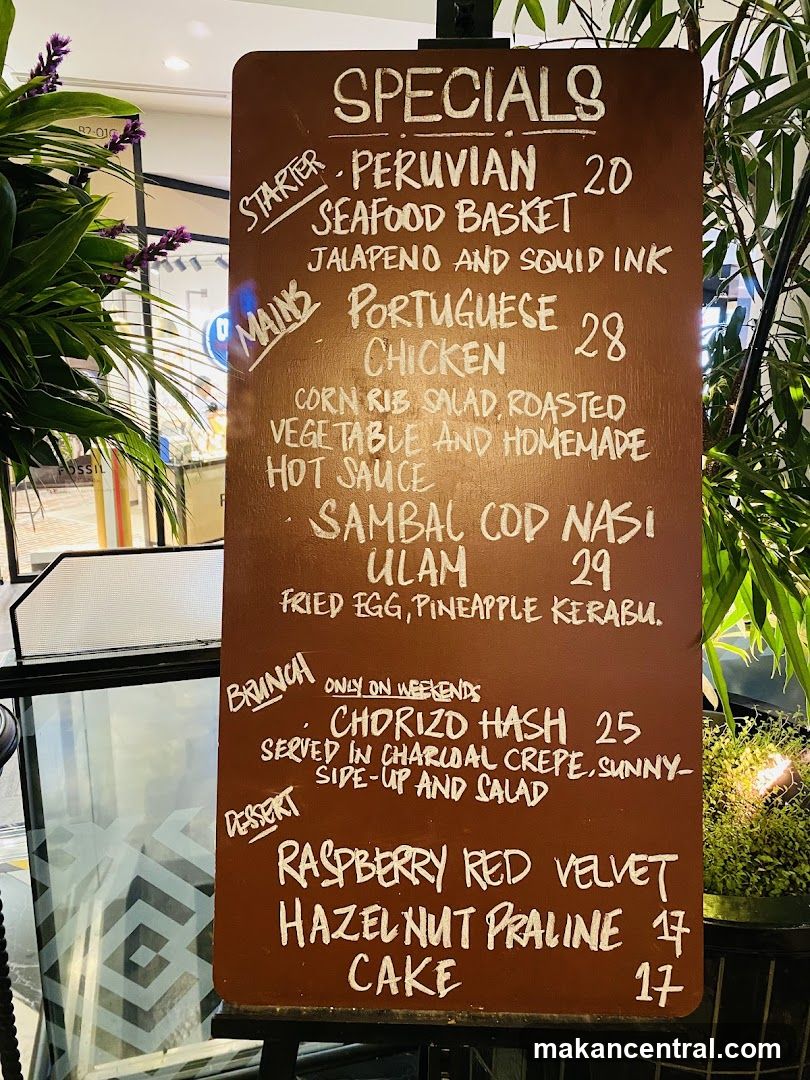 SPECIALS
STARTER
· PERUVIAN 20
SEAFOOD BASKET
JALAPENO AND SQUID INK
MAINS
· PORTUGUESE
CHICKEN 28
CORN RIB SALAD, ROASTED
VEGETABLE AND HOMEMADE
HOT SAUCE
· SAMBAL COD NASI
ULAM 29
FRIED EGG, PINEAPPLE KERABU.
BRUNCH ONLY ON WEEKENDS
· CHORIZO HASH 25
SERVED IN CHARCOAL CREPE, SUNNY-
SIDE-UP AND SALAD
DESSERT
RASPBERRY RED VELVET
HAZELNUT PRALINE 17
CAKE 17
FOSSIL
makancentral.com